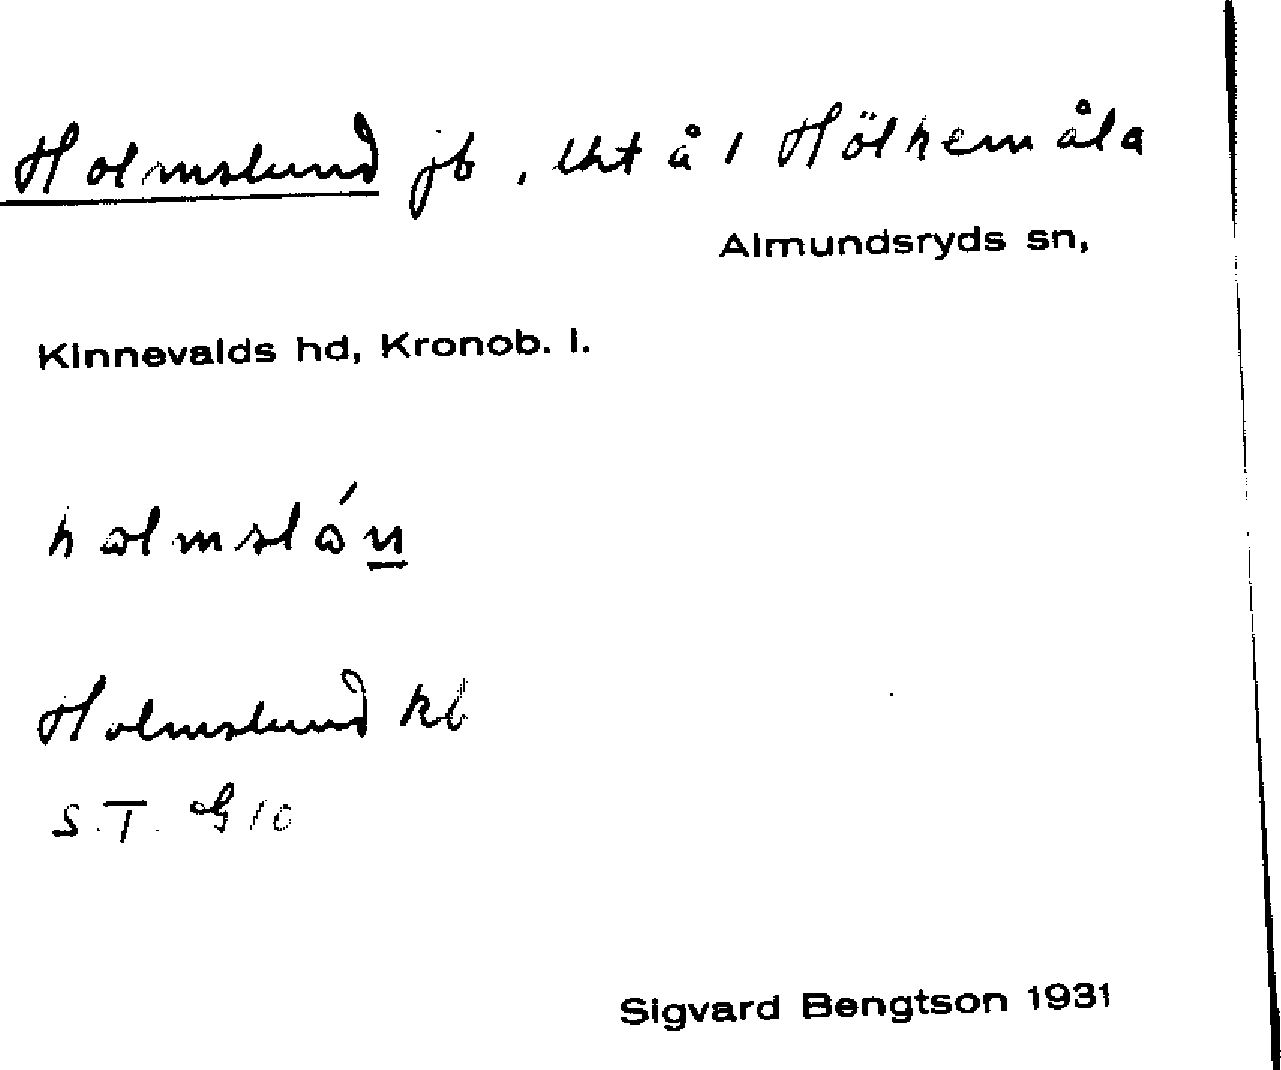 Holmslund jb, lht å 1 Hölkemåla
Almundsryds sn,
Kinnevalds hd, Kronob. l.
hɷlmslɷ́n
Holmslund kb
S.T. G 10
Sigvard Bengtson 1931